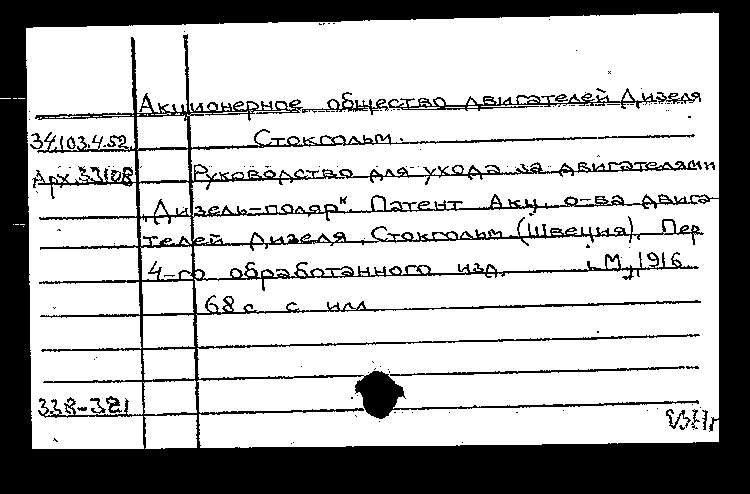 Акционерное общество двигателей Дизеля
34.103.4.52 Стокгольм.
Арх.33108 Руководство для ухода за двигателями
„Дизель-поляр“. Патент Акц. о-ва двига-
телей Дизеля, Стокгольм (Швеция). Пер
4-го обработанного изд. М., 1916
68 с. с илл
338-381